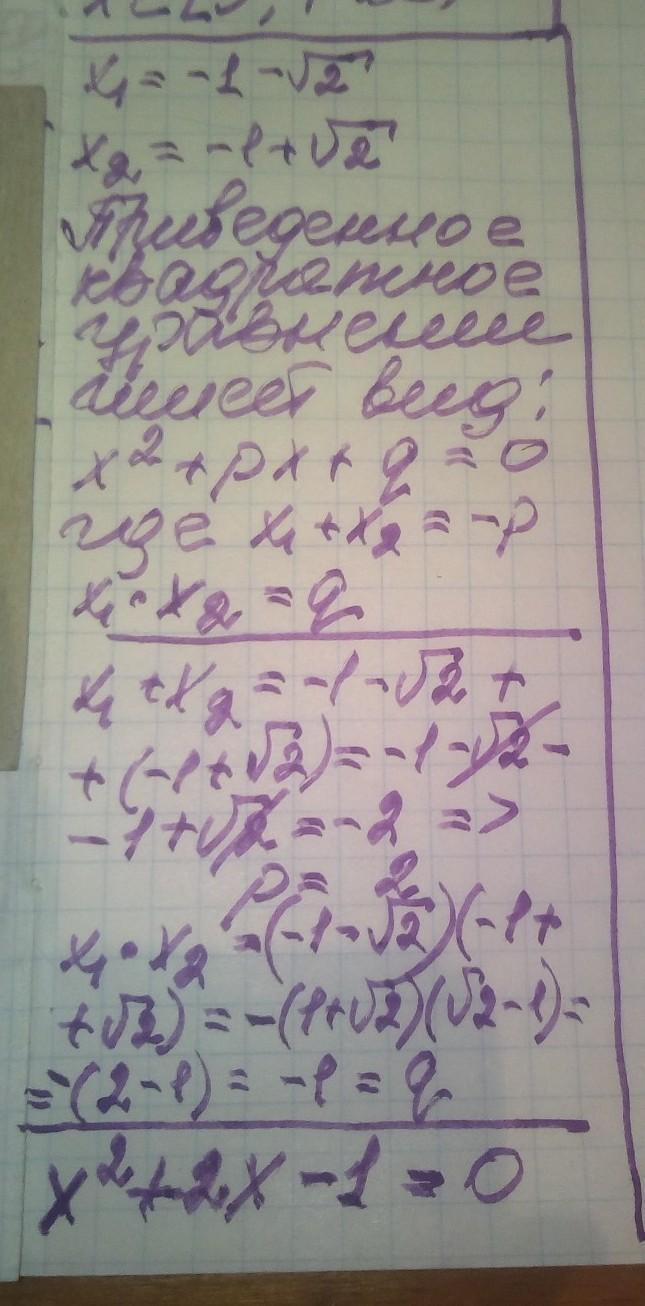 x₁ = -1 - √2
x₂ = -1 + √2
Приведенное
квадратное
уравнение
имеет вид:
x² + px + q = 0
где x₁ + x₂ = -p
x₁ · x₂ = q
x₁ + x₂ = -1 - √2 +
+ (-1 + √2) = -1 - √2 -
- 1 + √2 = -2 =>
p = 2
x₁ · x₂ = (-1 - √2)(-1 +
+ √2) = -(1+√2)(√2-1) =
= -(2-1) = -1 = q
x² + 2x - 1 = 0